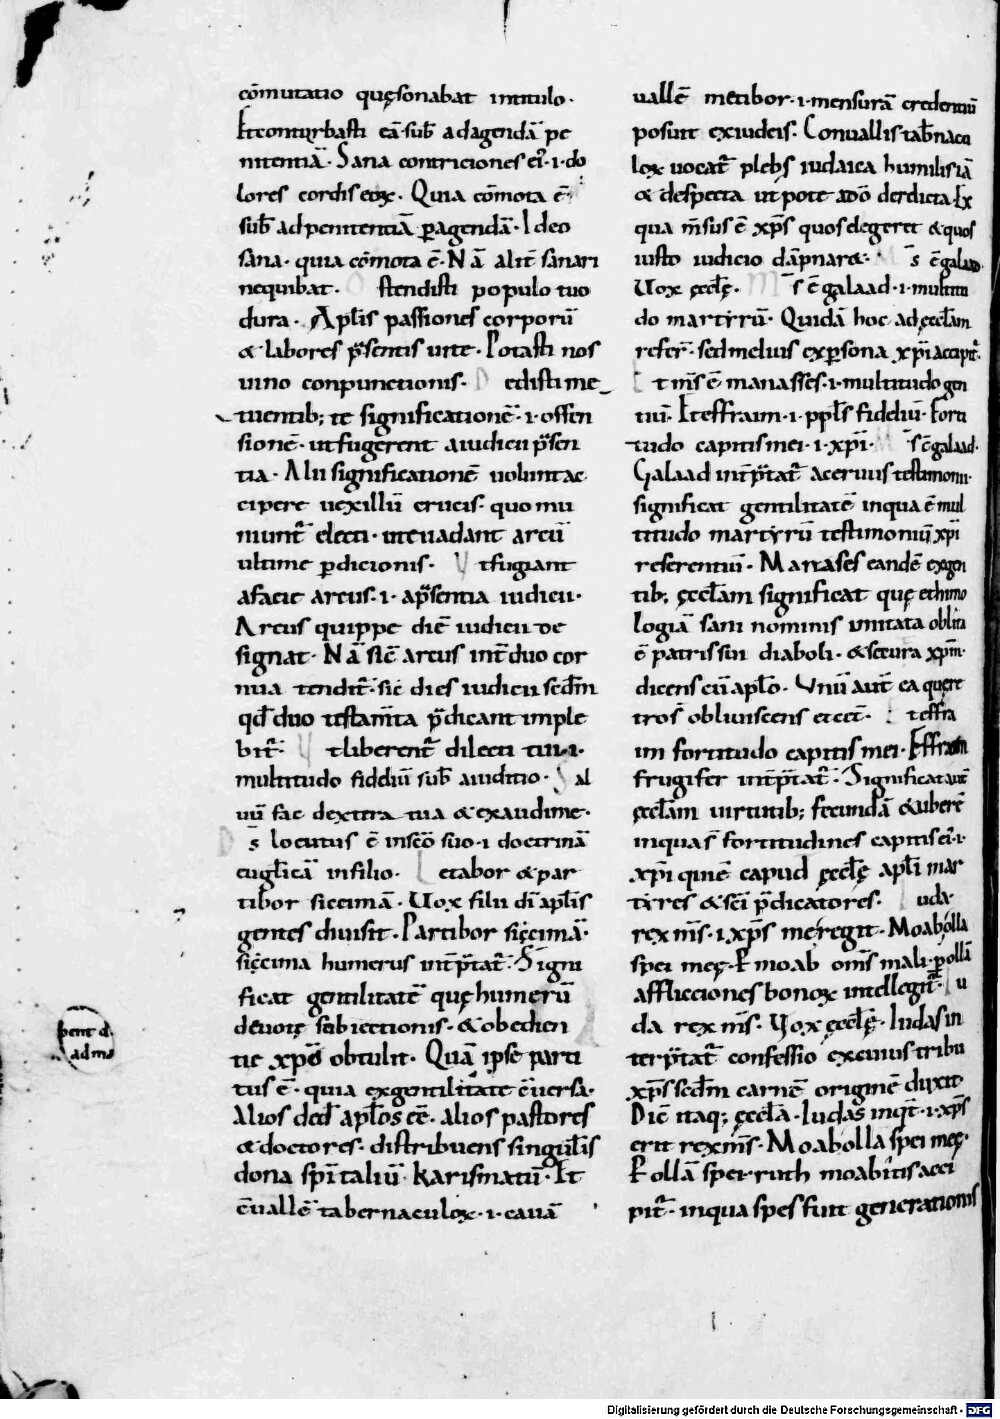 cōmutatio quęsonabat intitulo·
Etconturbasti eā·sub̄ adagendā pe
nitentiā· Sana contriciones ei᷒·i·do
lores cordis eoꝝ· Quia cōmota ē·
sub̄ adpenitentiā ꝑagendā· Ideo
sana· quia cōmota ē· Nā alit̄ sanari
nequibat· Ostendisti populo tuo
dura· Apl̄is passiones corporū
& labores p̄sentis uite· Potasti nos
uino conpunctionis· Dedisti me
tuentib; te significationē·i·offen
sionē· utfugerent aiudicii p̄sen
tia· Alii significationē uoluntac
cipere uexillū crucis· quo mu
niunt᷒ electi· uteuadant arcū
ultime ꝑdicionis· Utfugiant
afacie arcus·i·ap̄sentia iudicii·
Arcus quippe diē iudicii de
signat· Nā sic̄ arcus int̄duo cor
nua tendit᷒· sic dies iudicii secd̄m
qd̄ duo testam̄ta p̄dicant imple
bit᷒· Utliberent᷒ dilecti tui·i·
multitudo fidēliū sub̄ auditio· Sal
uū fac dextera tua &exaudime·
D̄s locutus ē insc̄o suo·i·doctrinā
euglicā infilio· Letabor &par
tibor siccimā· Uox filii di᷒ apl̄is
gentes diuisit· Partibor sic̨cimā·
sic̨cima humerus int̄p̄tat᷒· Signi
ficat gentilitatē quęhumerū
deuotę subiectionis· &obedien
tie xp̄o obtulit· Quā ipse parti
tus ē· quia exgentilitate cūersa·
Alios ded̄ apl̄os eē· alios pastores
&doctores· distribuens singul̄is
dona sp̄italiū· karismatū· Et
cūallē tabernaculoꝝ·i·cauā
pent d̄
adms
uallē metibor·i·mensurā credentiū
posuit exiudeis· Conuallis tab̄nacu
loꝝ uocat᷒ plebs iudaica humilis iā
& despecta utpote ado᷒ derelicta· Ex
qua m̄sus ē xp̄s quosdegeret &quos
iusto iudicio dāpnar&· M̄s ēgalaad
Uox ęccl̄ę· M̄s ē galaad·i·multitu
do martyrū· Quidā hoc adęccl̄am
refer᷒· sedmelius exꝑsona xp̄i accipit᷒·
Et m̄s ē manasses·i·multitudo gen
tiū· Eteffraim·i·ppl̄s fideliū· Forti
tudo capitismei·i·xp̄i· M̄s ēgalaad·
Galaad int̄p̄tat᷒ aceruus testimonii·
significat gentilitatē inqua ē mul
titudo martyrū testimoniū xp̄i
referentiū· Manases eandē exgen
tib; ęccl̄am significat quę ethimo
logiā sani nominis imitata oblita
ē patris sui diaboli· &secura xp̄m·
dicens cū apl̄o· Unū aut̄ ea quere
tros̄ obliuiscens etcet̄· Eteffra
im fortitudo capitis mei· Effraim
frugifer int̄p̄tat᷒· Significat aut̄
ęccl̄am uirtutib; fecundā &uberē
inqua s̄ fortitudines capitis ei᷒·i·
xp̄i quinē capud ęccl̄ę apl̄i mar
tires & sc̄i p̄dicatores· Iuda·
rex m̄s·i·xp̄s meregit· Moabolla
spei meę· P̄ moab om̄s mali·ꝑollā
afflicciones bonoꝝ intellegit᷒· Iu
da rex m̄s· Uox ęccl̄ę· Iudas in
terp̄tat᷒ confessio excuius tribu
xp̄s secd̄m carnē originē duxit·
Diē itaq; ęccl̄a· Iudas inqt̄·i·xp̄s
erit rex m̄s· Moabolla spei meę·
P̄ ollā spei·ruth moabitis acci
pit᷒· inqua spes fuit generationis
Digitalisierung gefördert durch die Deutsche Forschungsgemeinschaft · DFG